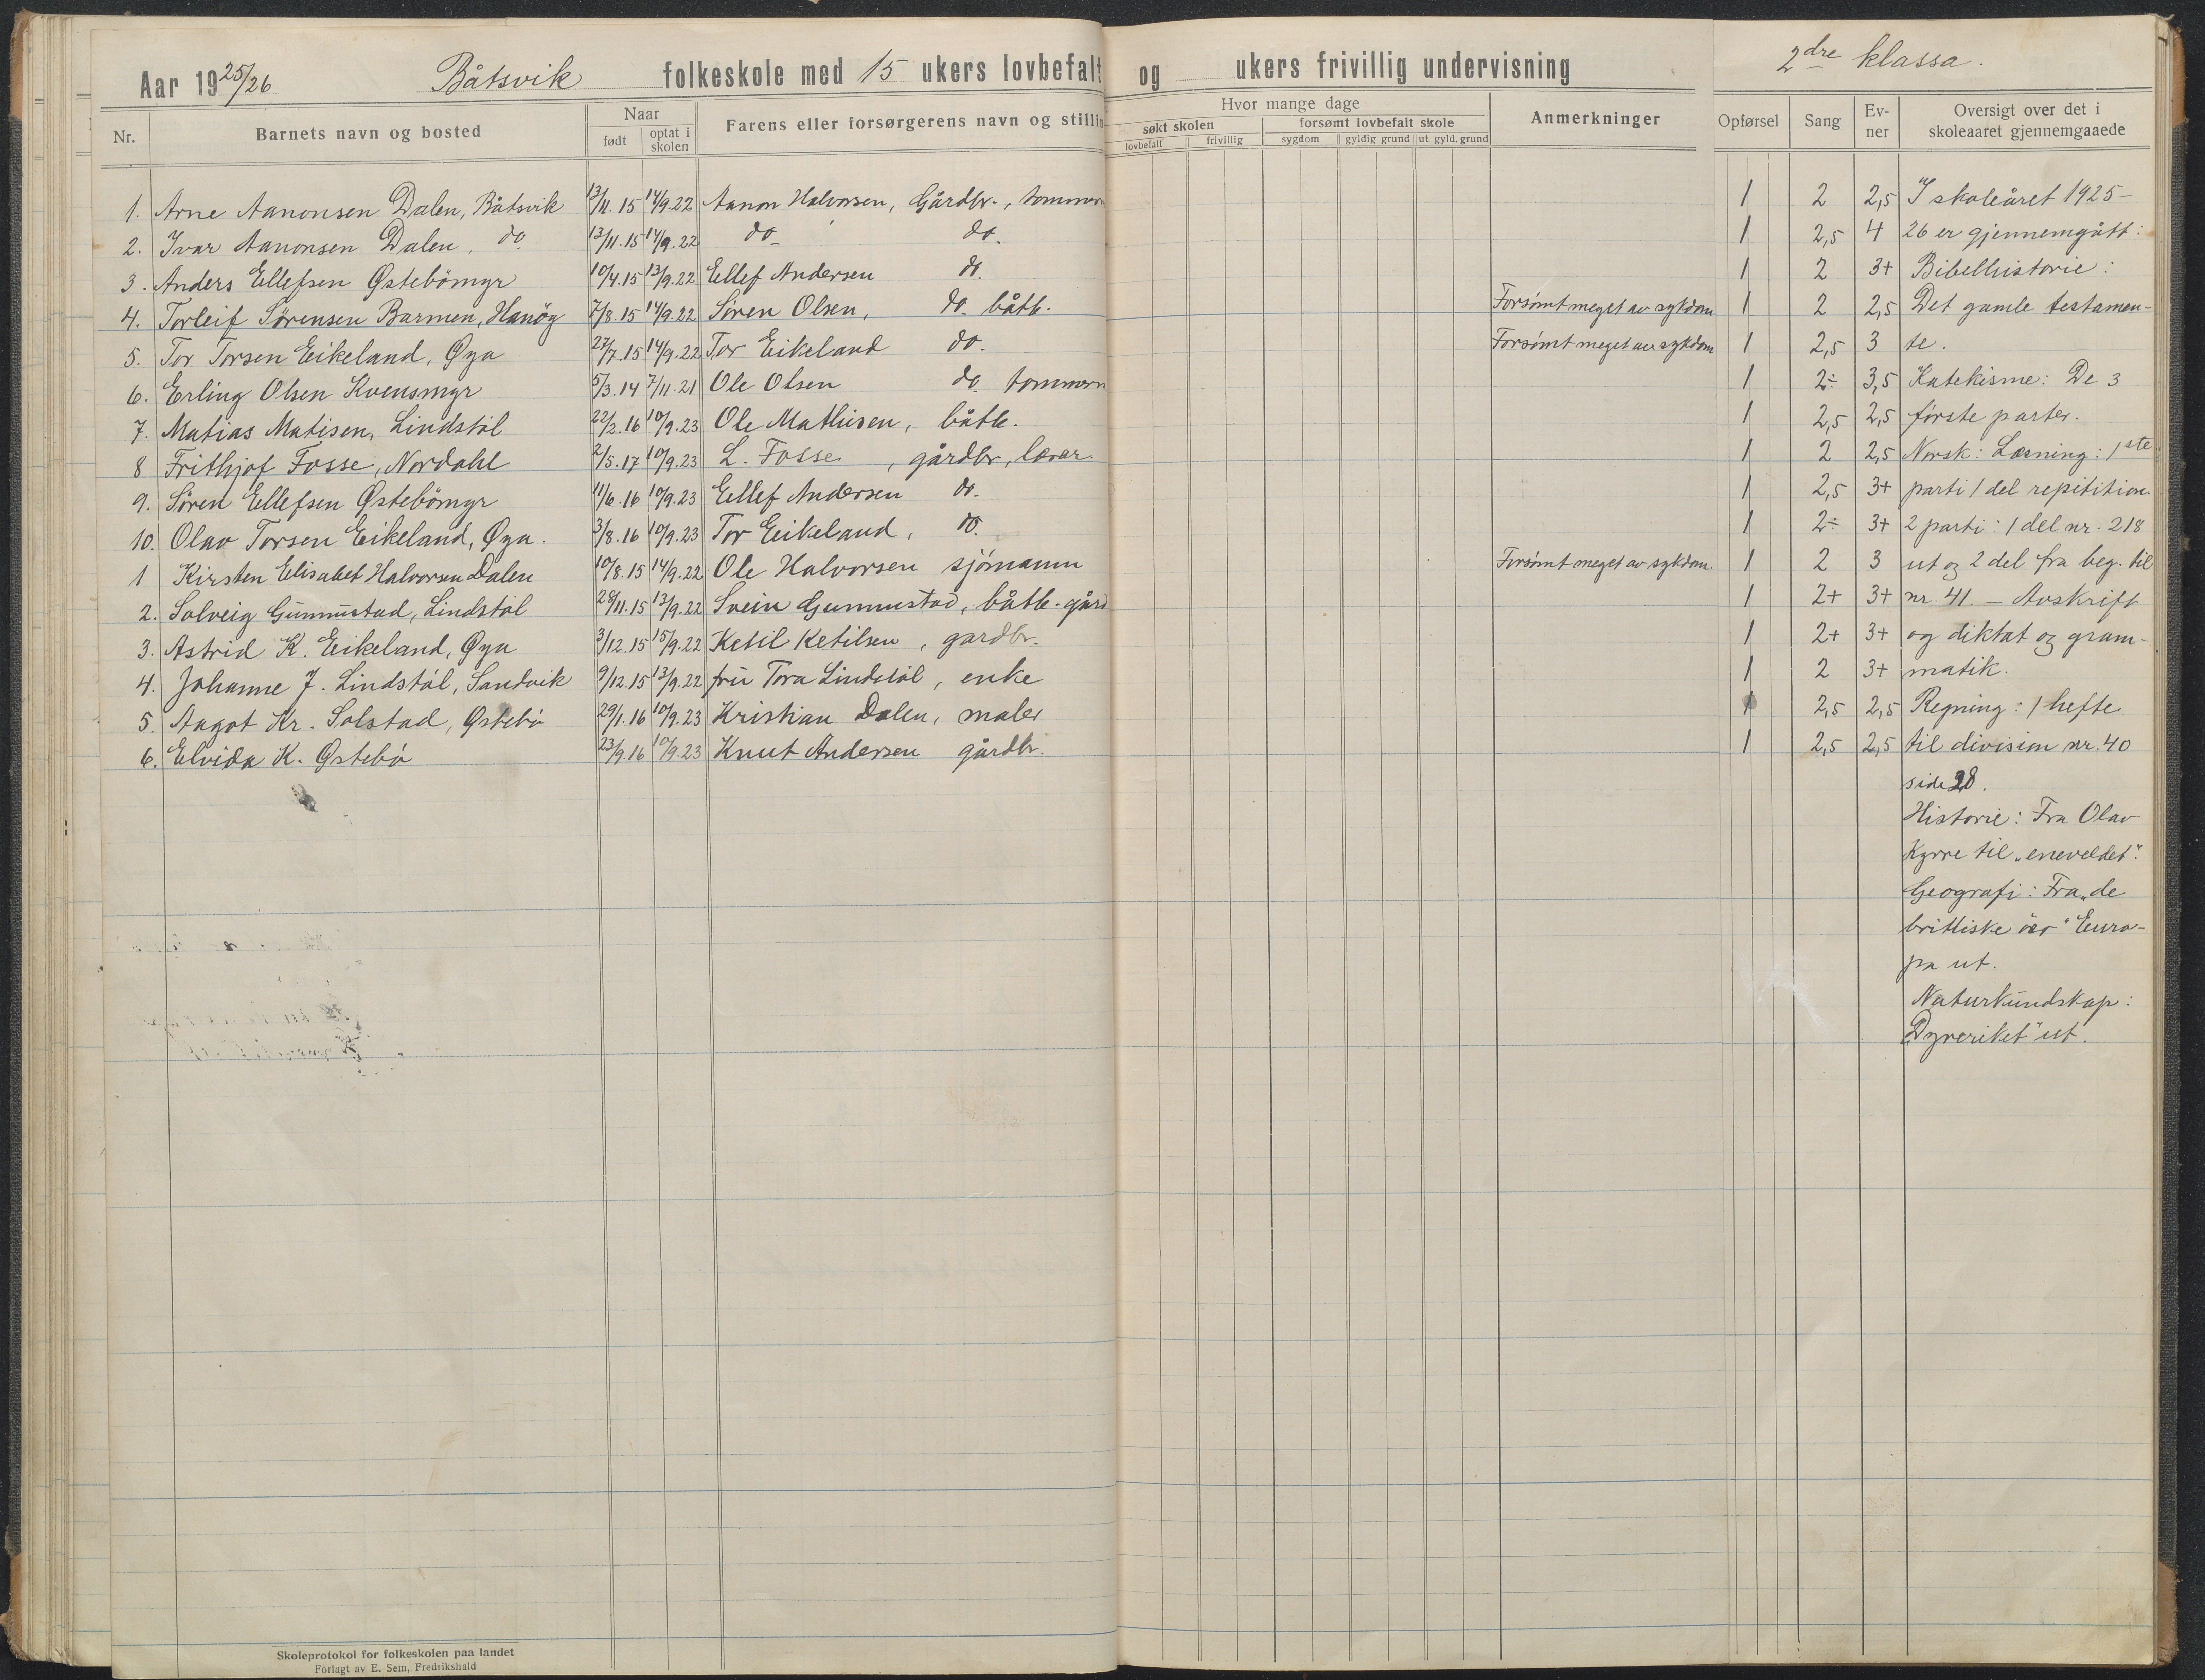 Aar 1925/26 Båtsvik folkeskole med 15 ukers lovbefalt og ukers frivillig undervisning 2dre klassa.
Nr. Barnets navn og bosted Naar født optat i skolen Farens eller forsørgerens navn og stilling Hvor mange dage søkt skolen lovbefalt frivillig forsømt lovbefalt skole sygdom gyldig grund ut. gyld. grund Anmerkninger Opførsel Sang Ev-ner Oversigt over det i skoleaaret gjennemgaaede
1. Arne Aanonsen Dalen, Båtsvik 13/11.15 14/9.22 Aanon Halvorsen, Gårdbr., tømmerm 1 2 2,5 I skoleåret 1925-
2. Ivar Aanonsen Dalen, do 13/11.15 14/9.22 do do. 1 2,5 4 26 er gjennemgått:
3. Anders Ellefsen Østebömyr 10/4.15 13/9.22 Ellef Andersen do. 1 2 3+ Bibelhistorie:
4. Torleif Sörensen Barmen, Hanöy 7/8.15 14/9.22 Sören Olsen, do. båtb. Forsömt meget av sykdom 1 2 2,5 Det gamle testamen-
5. Tor Torsen Eikeland, Øya 27/7.15 14/9.22 Tor Eikeland do. Forsömt meget av sykdom 1 2,5 3 te.
6. Erling Olsen Kvensmyr 5/3.14 7/11.21 Ole Olsen do. tømmerm 1 2÷ 3,5 Katekisme: De 3
7. Matias Matisen, Lindstöl 22/2.16 10/9.23 Ole Mathisen, båtb. 1 2,5 2,5 förste parter.
8 Frithjof Fosse, Nordahl 2/5.17 10/9.23 L. Fosse, gårdbr, lærer 1 2 2,5 Norsk: Læsning: 1ste
9. Sören Ellefsen Östebömyr 11/6.16 10/9.23 Ellef Andersen do. 1 2,5 3+ parti 1 del repitition
10. Olav Torsen Eikeland, Øya. 3/8.16 10/9.23 Tor Eikeland, do. 1 2÷ 3+ 2 parti: 1 del nr. 218
1 Kirsten Elisabet Halvorsen Dalen 10/8.15 14/9.22 Ole Halvorsen sjömann Forsömt meget av sykdom. 1 2 3 ut og 2 del fra beg. til
2. Solveig Gunnustad, Lindstöl 28/11.15 13/9.22 Svein Gunnustad, båtb. gård 1 2+ 3+ nr. 41. - Avskrift
3. Astrid K. Eikeland, Øya 3/12.15 15/9.22 Ketil Ketilsen, gardbr. 1 2+ 3+ og diktat og gram-
4. Johanne J. Lindstöl, Sandvik 9/12.15 13/9.22 fru Tora Lindstöl, enke 1 2 3+ matik.
5. Aagot Kr. Solstad, Østebö 29/1.16 10/9.23 Kristian Dalen, maler 1 2,5 2,5 Regning: 1 hefte
6. Elvida K. Østebö 23/9.16 10/9.23 Knut Andersen gårdbr. 1 2,5 2,5 til division nr. 40
side 28.
Historie: Fra Olav
Kyrre til „eneveldet".
Geografi: Fra „de
brittiske öer" Euro-
pa ut.
Naturkundskap:
„Dyreriket" ut.
Skoleprotokol for folkeskolen paa landet
Forlagt av E. Sem, Fredrikshald